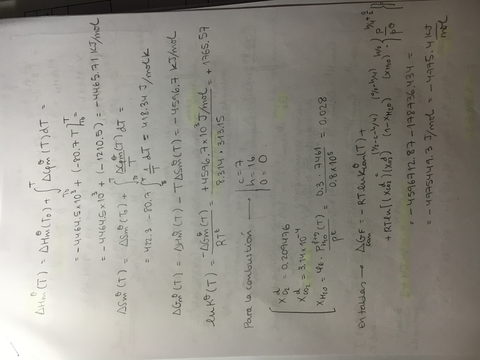 ΔHm°(T) = ΔHm°(T₀) + ∫ΔCpm°(T)dT =
= -4464.5×10³ + (-80.7 T) =
= -4464.5×10³ + (-1210.5) = -4465.71 KJ/mol
ΔSm°(T) = ΔSm°(T₀) + ∫ ΔCpm°(T)/T dT =
= 422.3 - 80.7 ∫ 1/T dT = 418.34 J/mol K
ΔGm°(T) = ΔHm°(T) - TΔSm°(T) = -4596.7 KJ/mol
ln K°(T) = -ΔGm°(T)/RT = +4596.7×10³ J/mol / 8.314 · 313.15 = +1765.57
Para la combustion → c = 7
h = 16
o = 0
x O₂ d = 0.209476
x CO₂ d = 3.14×10⁻⁴
x H₂O = φ₀ · P H₂O (T) / p = 0.3 · 7461 / 0.8×10⁵ = 0.028
Entonces → ΔGF = -RT ln K com(T) +
+ RT ln [(x CO₂ d)(x O₂ d)(1-x H₂O) (x H₂O) · (p/p⁰)]
= -4596712.87 - 178736.434 =
= -4775449.3 J/mol = -4775.4 KJ/mol